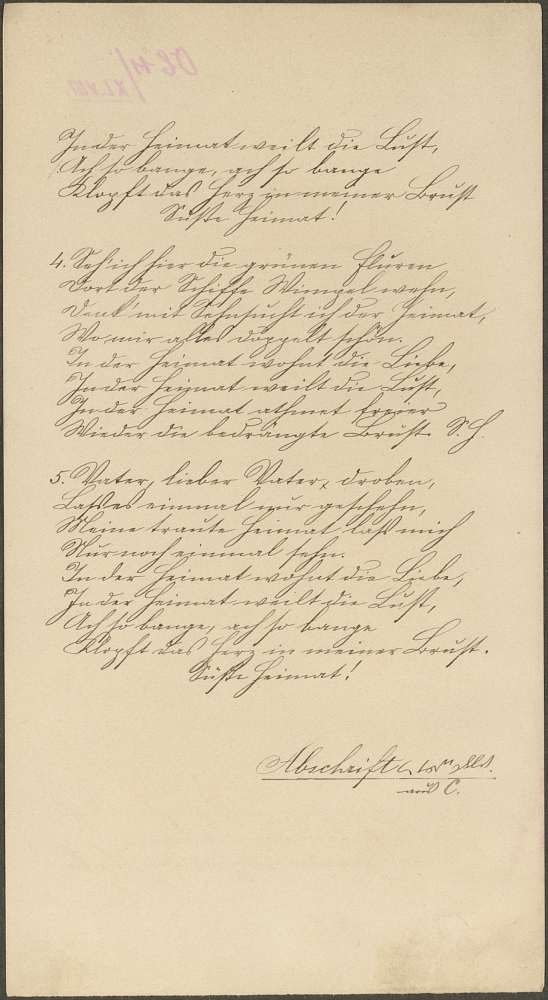 In der Heimat weilt die Lust,
Ach so bange, ach so bange
Klopft das Herz in meiner Brust
Süße Heimat!
4. Seh' ich hier die grünen Fluren
Dort der Schiffe Wimpel wehn,
Denk' mit Sehnsucht ich der Heimat,
Wo mir alles doppelt schön.
In der Heimat wohnt die Liebe,
In der Heimat weilt die Lust,
In der Heimat athmet freier
Wieder die bedrängte Brust. S. H.
5. Vater, lieber Vater, droben,
Laß es einmal nur geschehn,
Meine traute Heimat laß mich
Nur noch einmal sehn.
In der Heimat wohnt die Liebe,
In der Heimat weilt die Lust,
Ach so bange, ach so bange
Klopft das Herz in meiner Brust.
Süße Heimat!
Abschrift
aus C.